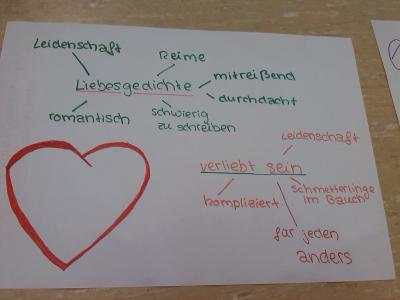 Leidenschaft
Reime
Liebesgedichte
mitreißend
durchdacht
romantisch
schwierig
zu schreiben
Leidenschaft
verliebt sein
kompliziert
Schmetterlinge
im Bauch
für jeden
anders